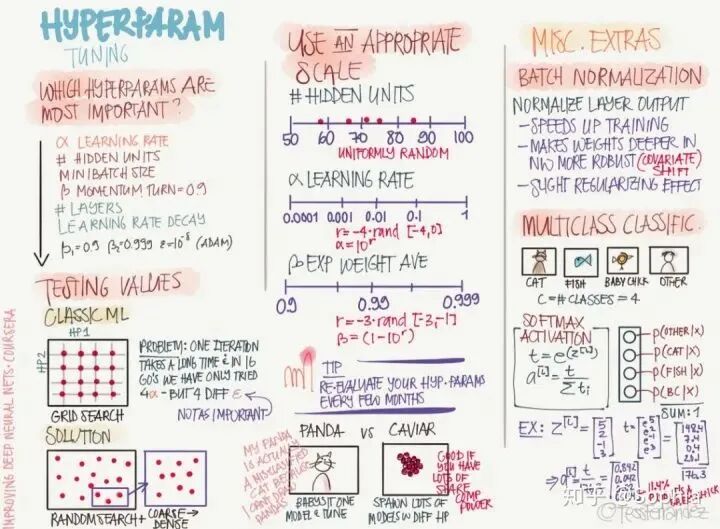 HYPERPARAM
TUNING
WHICH HYPERPARAMS ARE
MOST IMPORTANT?
α LEARNING RATE
# HIDDEN UNITS
MINIBATCH SIZE
β MOMENTUM TURN = 0.9
# LAYERS
LEARNING RATE DECAY
β₁=0.9 β₂=0.999 ε=10⁻⁸ (ADAM)
TESTING VALUES
CLASSIC ML
HP1
HP2
GRID SEARCH
PROBLEM: ONE ITERATION
TAKES A LONG TIME & IN 16
GO'S WE HAVE ONLY TRIED
4α - BUT 4 DIFF ε
NOT AS IMPORTANT
SOLUTION
RANDOM SEARCH +
COARSE→
DENSE
IMPROVING DEEP NEURAL NETS · COURSERA
USE AN APPROPRIATE
SCALE
# HIDDEN UNITS
50 60 70 80 90 100
UNIFORMLY RANDOM
α LEARNING RATE
0.0001 0.001 0.01 0.1 1
r = -4 · rand [-4,0]
α = 10^r
β EXP WEIGHT AVE
0.9 0.99 0.999
r = -3 · rand [-3,-1]
β = (1-10^r)
TIP
RE-EVALUATE YOUR HYP. PARAMS
EVERY FEW MONTHS
PANDA VS CAVIAR
MY PANDA
IS ACTUALLY
A MISCLASSIFIED
CAT BECAUSE
I CAN'T DRAW
PANDAS
BABYSIT ONE
MODEL & TUNE
SPAWN LOTS OF
MODELS W DIFF HP
GOOD IF
YOU HAVE
LOTS OF
SHARE
COMP
POWER
MISC. EXTRAS
BATCH NORMALIZATION
NORMALIZE LAYER OUTPUT
- SPEEDS UP TRAINING
- MAKES WEIGHTS DEEPER IN
NW MORE ROBUST (COVARIATE)
SHIFT
- SLIGHT REGULARIZING EFFECT
MULTICLASS CLASSIFIC.
CAT FISH BABY CHICK OTHER
C = # CLASSES = 4
SOFTMAX
ACTIVATION
t = e^(z^[L])
a^[L] = t / Σtᵢ
P(OTHER|X)
P(CAT|X)
P(FISH|X)
P(BC|X)
SUM: 1
EX: Z^[L] = [5 2 -1 3] t = [e⁵ e² e⁻¹ e³] = [148.4 7.4 0.4 20.1]
176.3
→ a^[L] = t / = [0.842 0.042
11.4%
知乎 @Sophia
@TessFerrandez